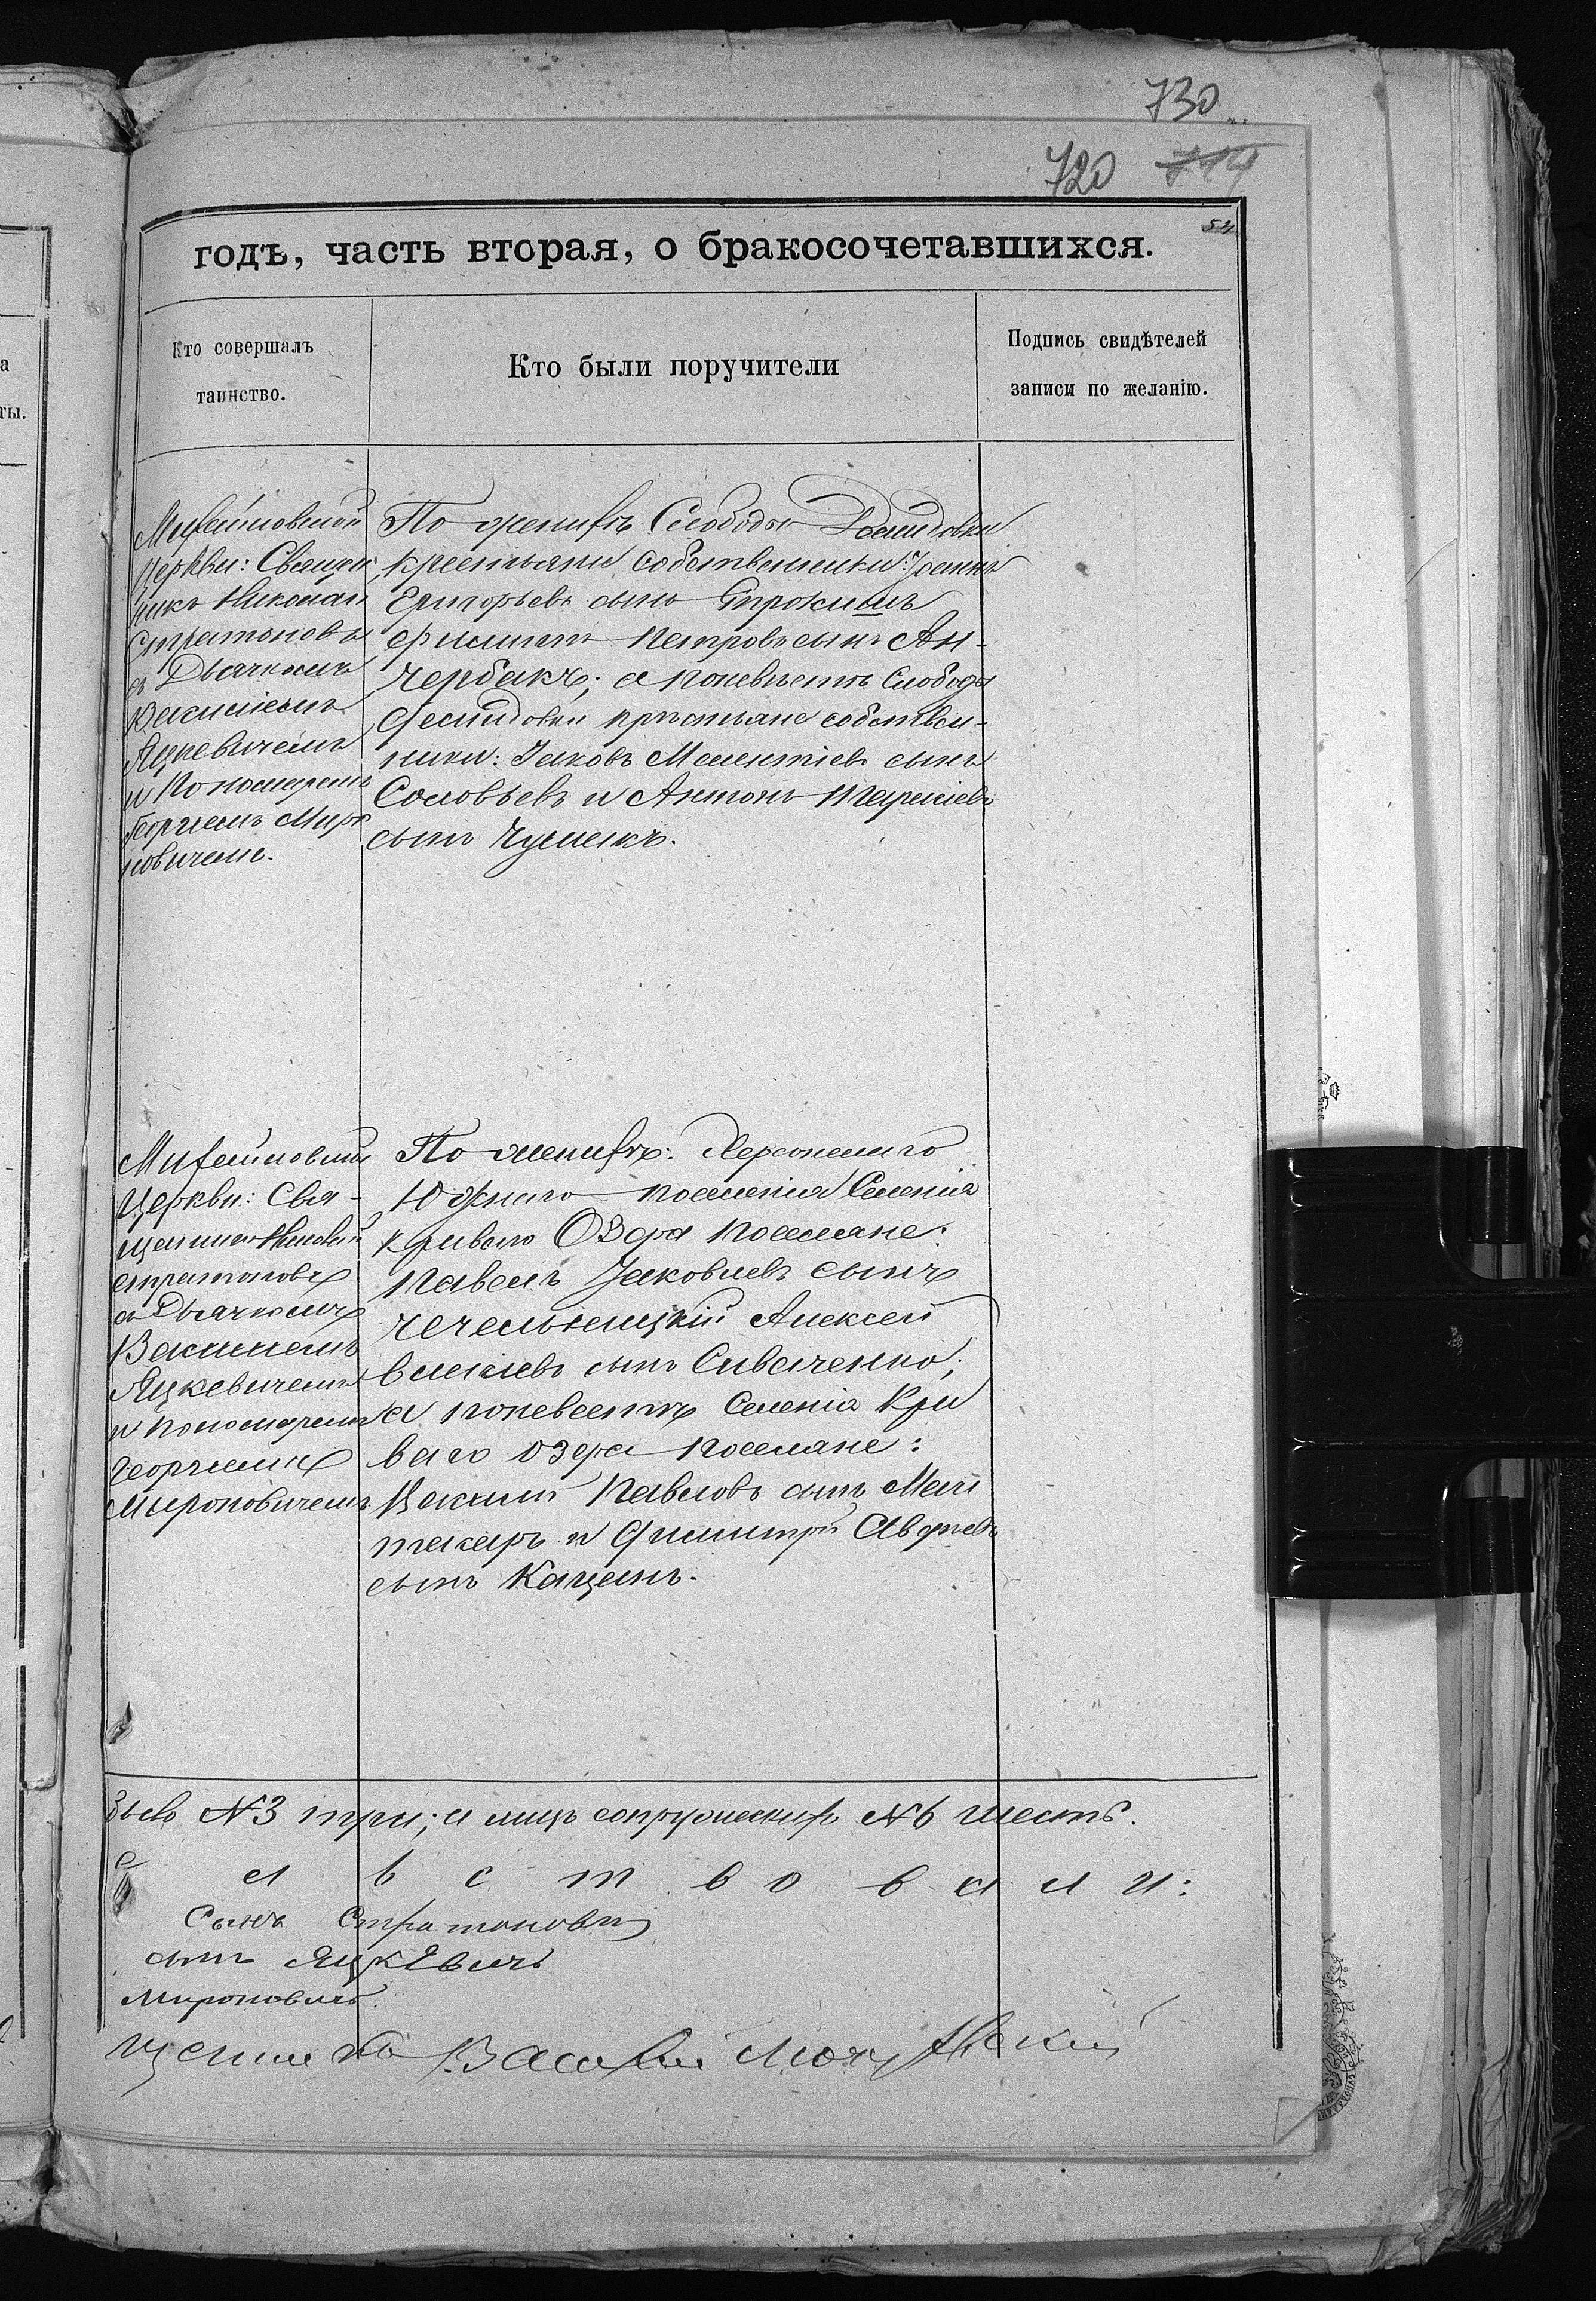 730
720 714
54
годъ, часть вторая, о бракосочетавшихся.
Кто совершалъ
таинство.
Кто были поручители
Подпись свидѣтелей
записи по желанію.
Михайловской
Церкви: Священ
никъ Николай
Стратоновъ
съ Дьячкомъ
Василіемъ
Яцкевичемъ
и Пономаремъ
Георгіемъ Миро
новичемъ.
По женихѣ Слободы Демидовки
крестьяне собственники: Іоаннъ
Григорьевъ сынъ
Филиппъ Петровъ сынъ Ан-
чербакъ; а по невѣстѣ Слободы
Демидовки крестьяне собствен-
ники: Іаковъ Мелентіевъ сынъ
Соловьевъ и Антонъ
сынъ Чумакъ.
Михайловской
Церкви: Свя-
щенникъ Николай
Стратоновъ
съ Дьячкомъ
Василіемъ
Яцкевичемъ
и Пономаремъ
Георгіемъ
Мироновичемъ.
По женихѣ: Херсонскаго
Южнаго поселенія Селенія
Криваго Озера поселяне:
Павелъ Іаковлевъ сынъ
Чечельницкій Алексей
сынъ Сиваченко;
а по невестѣ Селенія Кри
ваго Озера поселяне:
Василій Павловъ сынъ
и Димитрій
сынъ Кацанъ.
N3 три; а лицъ сопружескихъ N6 шесть.
л ь с т в о в а л и:
Сынъ Стратоновъ
сынъ Яцкевичъ
Мироновичъ.
щенникъ Василій